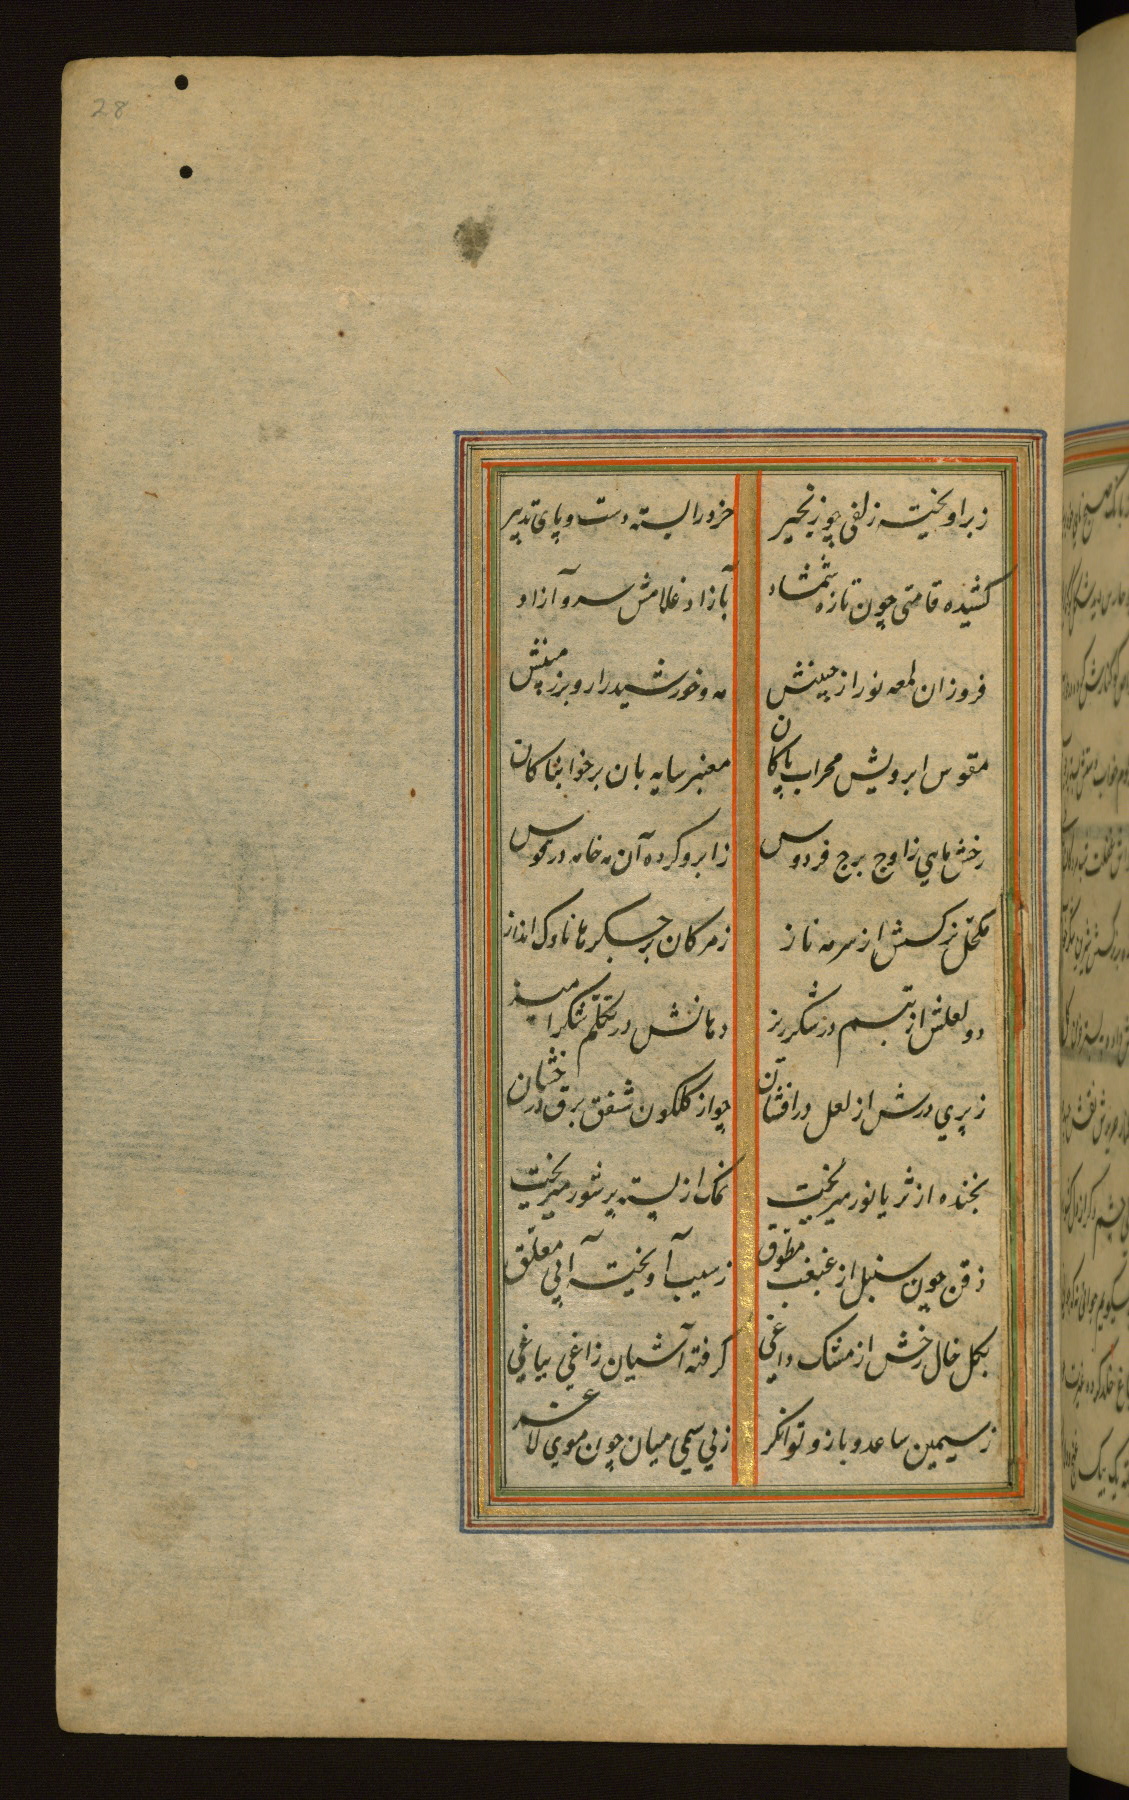 28
زبر اویخته زلفی چو زنجیر
خرد را بسته دست و پای تدبیر
کشیده قامتی چون تازه شمشاد
بآزادی غلامش سرو آزاد
فروزان لمعه نور از جبینش
مه و خورشید را رو بر زمینش
مقوس ابرویش محراب پاکان
معنبر سایه بان بر خوابناکان
رخش ماهی ز اوج برج فردوس
ز ابرو کرده آن مه خانه در قوس
مکحل نرکسش از سرمه ناز
ز مژکان بر جکرها ناوک انداز
دو لعلش از تبسم در شکرریز
دهانش در تکلم شکرامیز
درش از لعل درافشان
چو از کلکون شفق برق درخشان
بخنده از ثریا نور میریخت
نمک از پسته پر شور میریخت
ذقن چون از غبغب مطوق
ز سیب آویخته آبی معلق
بکل خال رخش از مشک داغی
کرفته آشیان زاغی بباغی
ز سیمین ساعد و بازو توانکر
ز بی سیمی میان چون موی لاغر